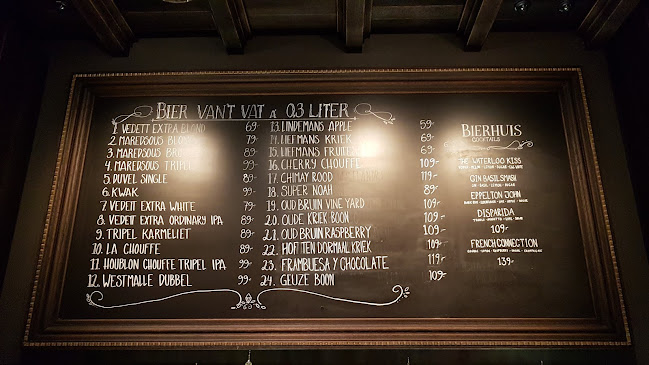 BIER VAN'T VAT á 0.3 LITER
1. VEDETT EXTRA BLOND 69-
2. MAREDSOUS BLOND 79-
3. MAREDSOUS BRUN 89-
4. MAREDSOUS TRIPEL 99-
5. DUVEL SINGLE 89-
6. KWAK 99-
7 VEDETT EXTRA WHITE 79-
8. VEDETT EXTRA ORDINARY IPA 89-
9. TRIPEL KARMELIET 89-
10. LA CHOUFFE 89-
11. HOUBLON CHOUFFE TRIPEL IPA 99-
12. WESTMALLE DUBBEL 99-
13. LINDEMANS APPLE 59-
14. LIEFMANS KRIEK 69-
15. LIEFMANS 69-
16. CHERRY CHOUFFE 109-
17. CHIMAY ROOD 119-
18. SUPER NOAH 89-
19. OUD BRUIN VINEYARD 109-
20. OUDE KRIEK BOON 109-
21. OUD BRUIN RASPBERRY 109-
22. HOF TEN DORMAAL KRIEK 109-
23. FRAMBUESA Y CHOCOLATE 119-
24. GEUZE BOON 109-
BIERHUIS
COCKTAILS
WATERLOO KISS
GIN BASIL SMASH
GIN · BASIL · LEMON · SUGAR
EPPELTON JOHN
DISPARIDA
109-
FRENCH CONNECTION
139-